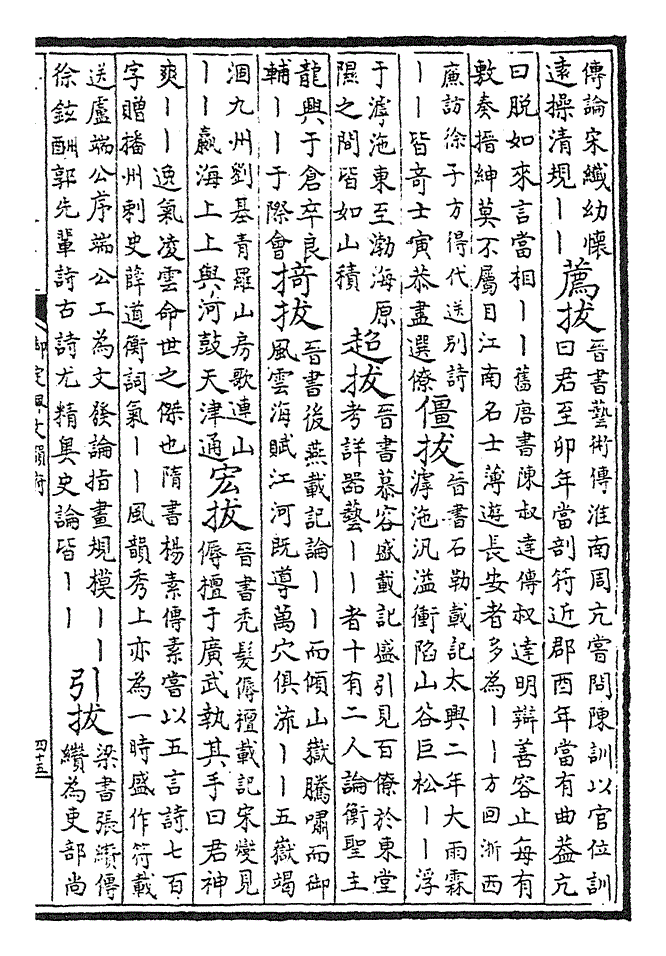 傳論宋纖幼懷
遠操清規丨丨
薦拔
晉書藝術傳淮南周亢嘗問陳訓以官位訓
曰君至卯年當剖符近郡酉年當有曲蓋亢
曰脫如來言當相丨丨舊唐書陳叔達傳叔達明辯善容止每有
敷奏搢紳莫不屬目江南名士薄遊長安者多為丨丨方回浙西
廉訪徐子方得代送别詩
丨丨皆竒士寅恭盡選僚
僵拔
晉書石勒載記太興二年大雨霖
滹沲汎溢衝陷山谷巨松丨丨浮
于滹沲東至渤海原
隰之間皆如山積
超拔
晉書慕容盛載記盛引見百僚於東堂
考詳器藝丨丨者十有二人論衡聖主
龍興于倉卒良
輔丨丨于際會
掎拔
晉書後燕載記論丨丨而傾山嶽騰嘯而御
風雲海賦江河既導萬穴俱流丨丨五嶽竭
涸九州劉基青羅山房歌連山
丨丨嬴海上上與河鼓天津通
宏拔
晉書禿髮傉檀載記宋燮見
傉檀于廣武執其手曰君神
爽丨丨逸氣凌雲命世之傑也隋書楊素傳素嘗以五言詩七百
字贈播州刺史薛道衡詞氣丨丨風韻秀上亦為一時盛作符載
送盧端公序端公工為文發論指畫規模丨丨
徐鉉酬郭先輩詩古詩尤精奥史論皆丨丨
引拔
梁書張纘傳
纘為吏部尚
御定佩文韻府
四十五